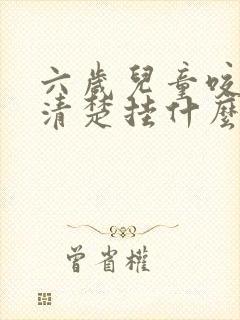 六歲兒童咬
清楚挂什麼
曾省權